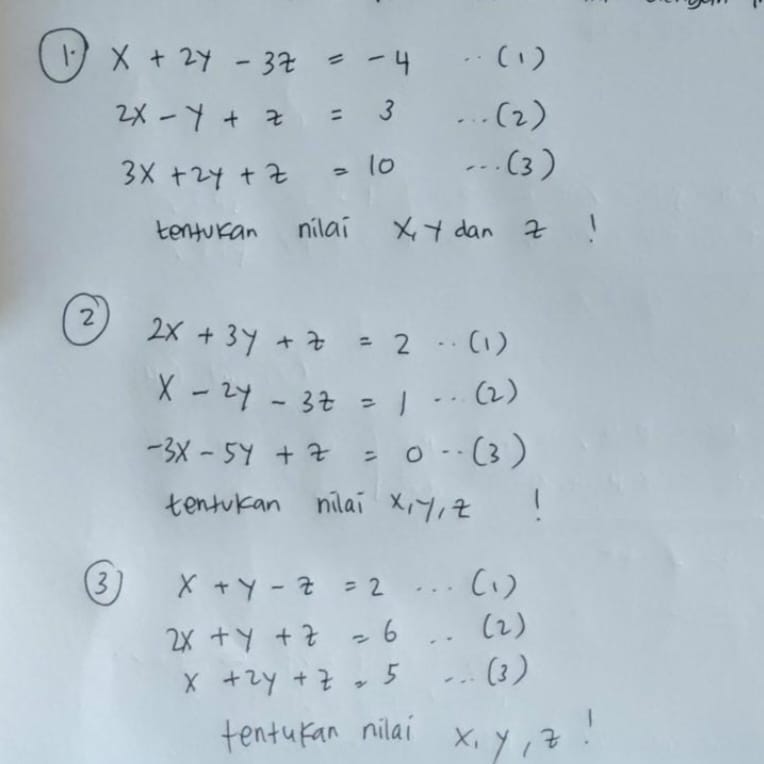 1. x + 2y - 3z = -4 .. (1)
2x - y + z = 3 ... (2)
3x + 2y + z = 10 ... (3)
tentukan nilai x, y dan z !
2 2x + 3y + z = 2 .. (1)
x - 2y - 3z = 1 ... (2)
-3x - 5y + z = 0 .. (3)
tentukan nilai x, y, z !
3 x + y - z = 2 ... (1)
2x + y + z = 6 .. (2)
x + 2y + z = 5 ... (3)
tentukan nilai x, y, z !